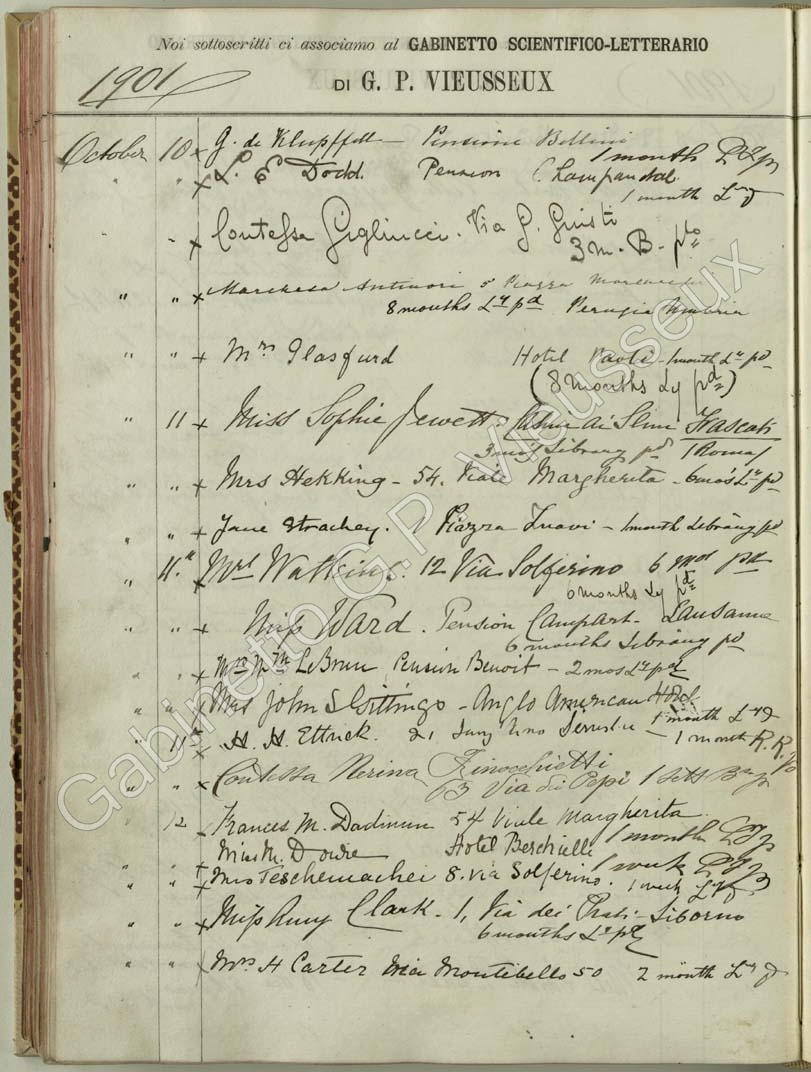 Noi sottoscritti ci associamo al GABINETTO SCIENTIFICO-LETTERARIO
1901
DI G. P. VIEUSSEUX
October 10 x G. de Klupffell — Pensione Bellini
1 month
" " x L. E. Dodd. Pension
1 month Ly
" x Contessa Gigliucci. Via G. Giusti
3 m. B. pto
" " x Marchesa Antinori 5 Piazza
8 months Ly pd Perugia Umbria
" " x Mrs Glasfurd Hotel Paoli - 1 month Ly pd
(8 months Ly pd)
" 11 x Miss Sophie Jewett. Frascati
3 mos Library pd (Roma)
" " x Mrs Hekking - 54. Viale Margherita - 6 mos Ly pd
" " x Jane Strachey. 1 Piazza - 1 month Library pd
" 11." x Mrs Watkins. 12 Via Solferino 6 mos pd
6 months Ly pd
" " x Miss Ward. Pension Campart - Lausanne
6 months Library pd
" " x Mrs Wm LeBrun Pension Benoit - 2 mos Ly pd
" " x Mrs John S Gittings - Anglo American Hotel
1 month Ly
" 11 x H. H. Ettrick. 21 Lung'Arno Serristori — 1 month R. R.
" " x Contessa Nerina Finocchietti
63 Via dei Pepi 1 sett
12 Frances M. 54 Viale Margherita
1 month
Miss M. Dowie Hotel Berchielli
1 week
" " x Mrs Teschemacher 8. via Solferino. 1 week
" " x Miss Amy Clark - 1, Via dei Prati - Livorno
6 months Ly pd
" " x Mrs H Carter Via Montebello 50 2 month Ly
Gabinetto G.P. Vieusseux